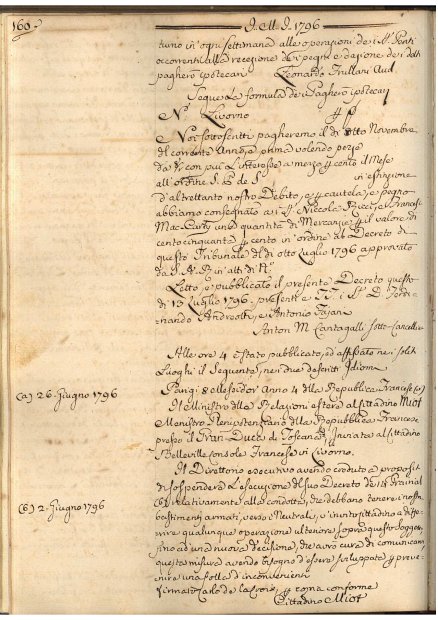 160
J. M. J. 1796
turno in ogni settimana alle operazioni de i SS. Periti
occorrenti alla recezione de i pegni e dazione de i detti
pagherò ipotecari Leonardo Frullani Aud.
Segue La formula de i Pagherò ipotecari
N.° Livorno
Noi sottoscritti pagheremo il dì otto Novembre
del corrente Anno, e prima volendo pezze
da 8/r con più L'interesse a mezzo p cento il Mese
all'ordine S. P. de S. in estinzione
d'altrettanto nostro Debito, e p cautela, e pegno
abbiamo consegnato a i SS. Niccola Ricci, e Francesco
Mac-Carty una quantità di Mercanzie p il valore di
cento cinquanta p cento in ordine al Decreto di
questo Tribunale del dì otto Luglio 1796 approvato
da S. A. R. in atti di N.°
Letto, e pubblicato il presente Decreto questo
dì 13 Luglio 1796. presenti e TT. i SS. D. Ferdi-
nando Andreotti, e Antonio Fajani
Anton M. Cantagalli Sotto-Cancellier
Alle ore 4 è stato pubblicato, ed affissato ne i soliti
Luoghi il Seguente, nei due descritti Idiomi
(a) 26. Giugno 1796
Parigi 8 Messidor Anno 4 della Repubblica Francese (a)
Il Ministro delle Relazioni estere al Cittadino Miot
Ministro Plenipotenziario della Repubblica Francese
presso il Gran-Duca di Toscana, Inviata al Cittadino
Belleville Console Francese in Livorno.
Il Direttorio esecutivo avendo creduto a proposito
di sospendere L'esecuzione del suo Decreto de 14 Prairial
(b) 2. Giugno 1796
(b) relativamente alla condotta, che debbono tenere i nostri
bastimenti armati, verso i Neutrali, v'invito cittadino a differire
qualunque operazione ulteriore sopra questo soggetto,
fino ad una nuova decisione, che avrò cura di comunicarvi,
questa misura avendo bisogno d'essere sviluppata p preve-
nire una folla d'inconvenienti
firmato Carlo de la Croix, p copia conforme
Cittadino Miot